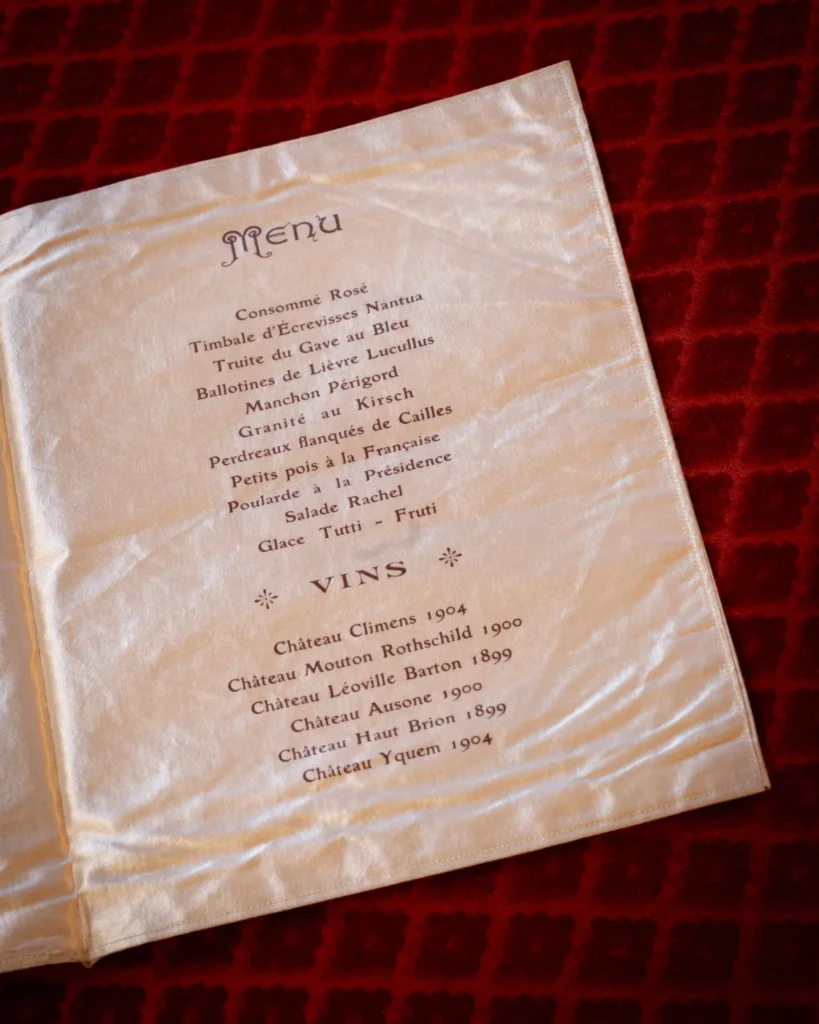 Menu
Consommé Rosé
Timbale d'Écrevisses Nantua
Truite du Gave au Bleu
Ballotines de Lièvre Lucullus
Manchon Périgord
Granité au Kirsch
Perdreaux flanqués de Cailles
Petits pois à la Française
Poularde à la Présidence
Salade Rachel
Glace Tutti - Fruti
VINS
Château Climens 1904
Château Mouton Rothschild 1900
Château Léoville Barton 1899
Château Ausone 1900
Château Haut Brion 1899
Château Yquem 1904